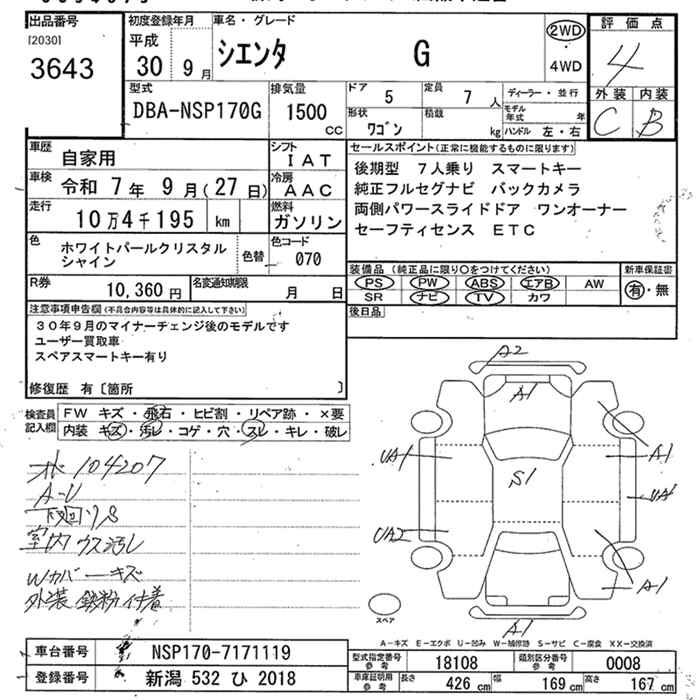 出品番号
[2030]
3643
初度登録年月
平成
30年 9月
車名・グレード
シエンタ G
2WD
・
4WD
評価点
4
外装 内装
C B
型式
DBA-NSP170G
排気量
1500
cc
ドア
5
定員
7人
形状
ワゴン
積載
kg
ディーラー・並行
モデル年式 年
ハンドル 左・右
車歴
自家用
シフト
IAT
車検
令和 7年 9月(27日)
冷房
AAC
走行
10万4千195 km
燃料
ガソリン
色
ホワイトパールクリスタル
シャイン
色替
色コード
070
R券
10,360円
名変通知期限
月 日
セールスポイント(正常に機能するものに限ります)
後期型 7人乗り スマートキー
純正フルセグナビ バックカメラ
両側パワースライドドア ワンオーナー
セーフティセンス ETC
装備品(純正品に限り○をつけてください)
PS PW ABS エアB AW
SR ナビ TV カワ
新車保証書
有・無
後日品
注意事項申告欄(不具合内容等は具体的に記入して下さい)
30年9月のマイナーチェンジ後のモデルです
ユーザー買取車
スペアスマートキー有り
修復歴 有〔箇所 〕
検査員
記入欄
FW キズ・飛石・ヒビ割・リペア跡・×要
内装 キズ・汚レ・コゲ・穴・スレ・キレ・破レ
104207
A-U
下廻りS
室内ウス汚レ
Wカバーキズ
外装 鉄粉付着
A2
A1
UA1
A1
S1
UA1
UA2
A1
A1
スペア
A-キズ E-エクボ U-凹み W-補修跡 S-サビ C-腐食 XX-交換済
車台番号
NSP170-7171119
登録番号
新潟 532 ひ 2018
型式指定番号
参考
18108
類別区分番号
参考
0008
車庫証明用
参考
長さ 426 cm
幅 169 cm
高さ 167 cm